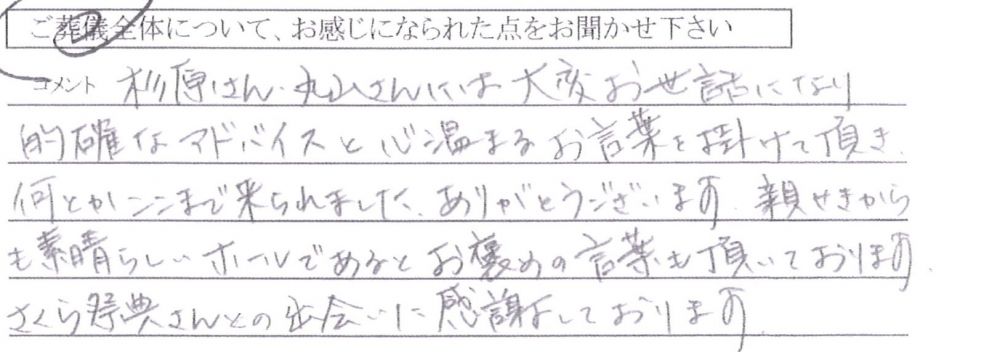 ご葬儀全体について、お感じになられた点をお聞かせ下さい
コメント 杉原さん・丸山さんには大変お世話になり
的確なアドバイスと心温まるお言葉を掛けて頂き、
何とかここまで来られました。ありがとうございます。親せきから
も素晴らしいホールであるとお褒めの言葉も頂いております。
さくら祭典さんとの出会いに感謝しております。